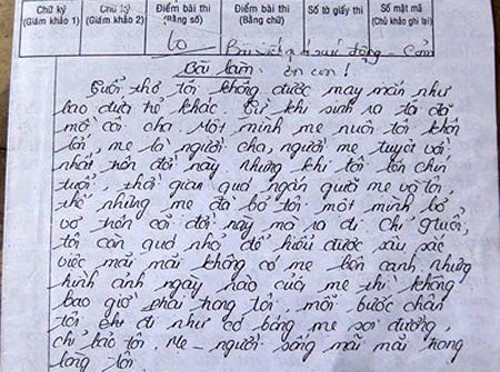 Chữ ký (Giám khảo 1) Chữ ký (Giám khảo 2) Điểm bài thi (Bằng số) Điểm bài thi (Bằng chữ) Số tờ giấy thi Số mật mã (Chủ khảo ghi lại)
10 Bài viết quá xúc động - Cảm
Bài làm. ơn con!
Tuổi thơ tôi không được may mắn như
bao đứa trẻ khác. Từ khi sinh ra tôi đã
mồ côi cha. Một mình mẹ nuôi tôi khôn
lớn, mẹ là người cha, người mẹ tuyệt vời
nhất trên đời này. Nhưng khi tôi lên chín
tuổi, thời gian quá ngắn mẹ
thế nhưng mẹ đã bỏ tôi một mình bơ
vơ trên cõi đời này mà ra đi. Chỉ 9 tuổi,
tôi còn quá nhỏ để hiểu được sâu sắc
việc mãi mãi không có mẹ bên cạnh nhưng
hình ảnh ngày nào của mẹ thì không
bao giờ phai trong tôi, mỗi bước chân
tôi đi như có bóng mẹ soi đường,
chỉ bảo tôi. Mẹ - người sống mãi mãi trong
lòng tôi.